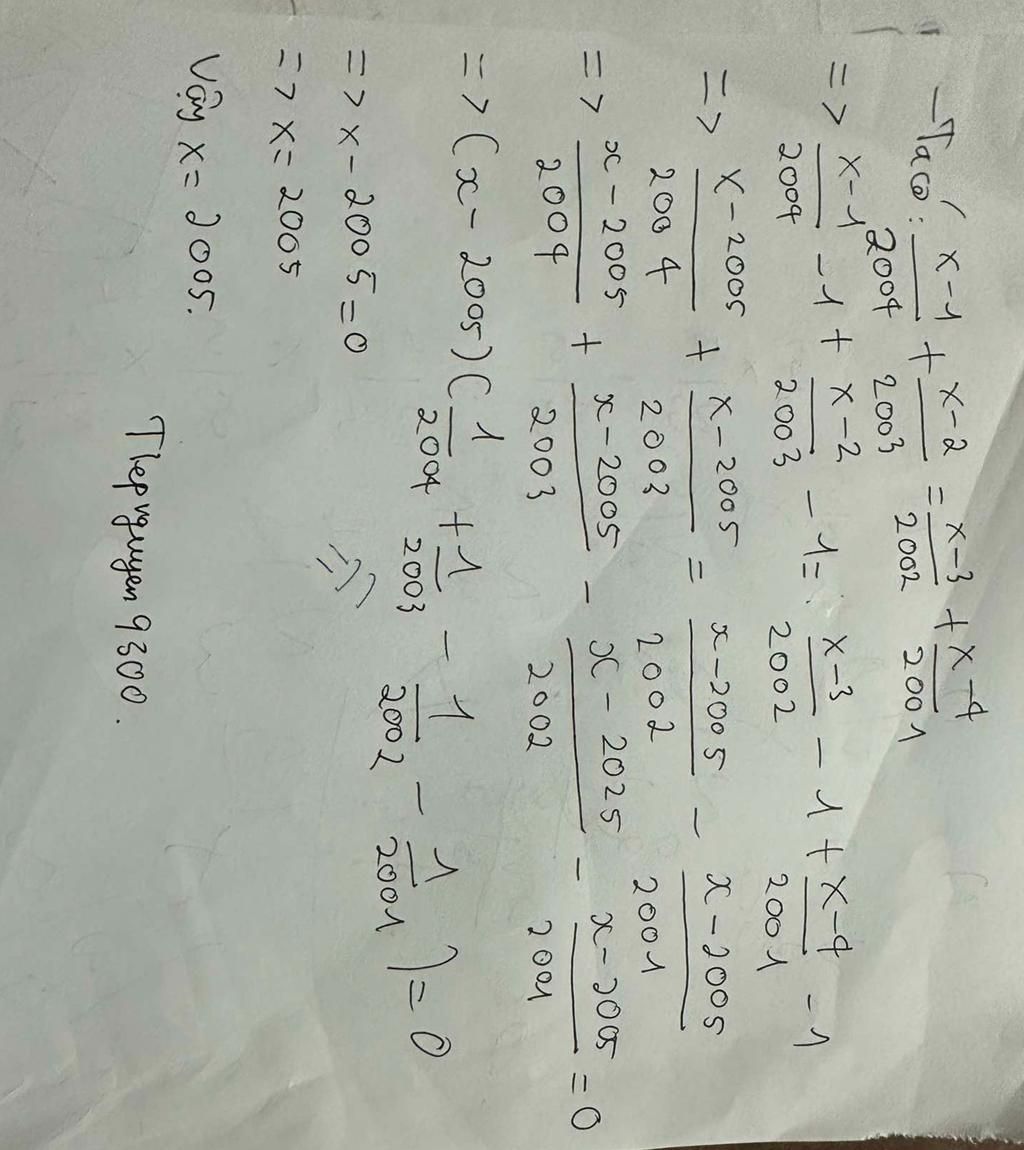 - Ta có: x-1/2004 + x-2/2003 = x-3/2002 + x-4/2001
=> x-1/2004 - 1 + x-2/2003 - 1 = x-3/2002 - 1 + x-4/2001 - 1
=> x-2005/2004 + x-2005/2003 = x-2005/2002 - x-2005/2001
=> x-2005/2004 + x-2005/2003 - x-2025/2002 - x-2005/2001 = 0
=> (x-2005)(1/2004 + 1/2003 - 1/2002 - 1/2001) = 0
=> x-2005=0
=> x= 2005
Vậy x= 2005.
Thepnguyen9300.